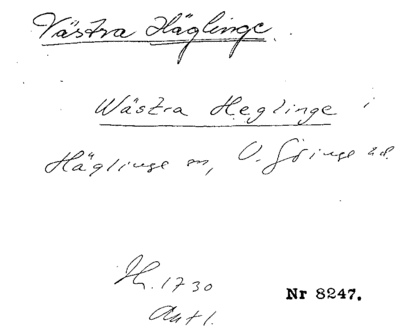 Västra Häglinge.
Wästra Heglinge i
Häglinge sn, V. Göinge hd.
Jb. 1730
Antl.
Nr 8247.